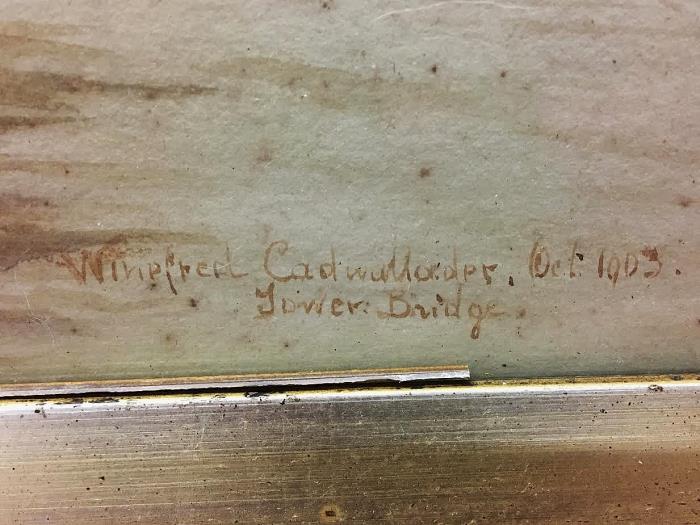 Winefred Cadwallader, Oct 1903.
Tower Bridge.